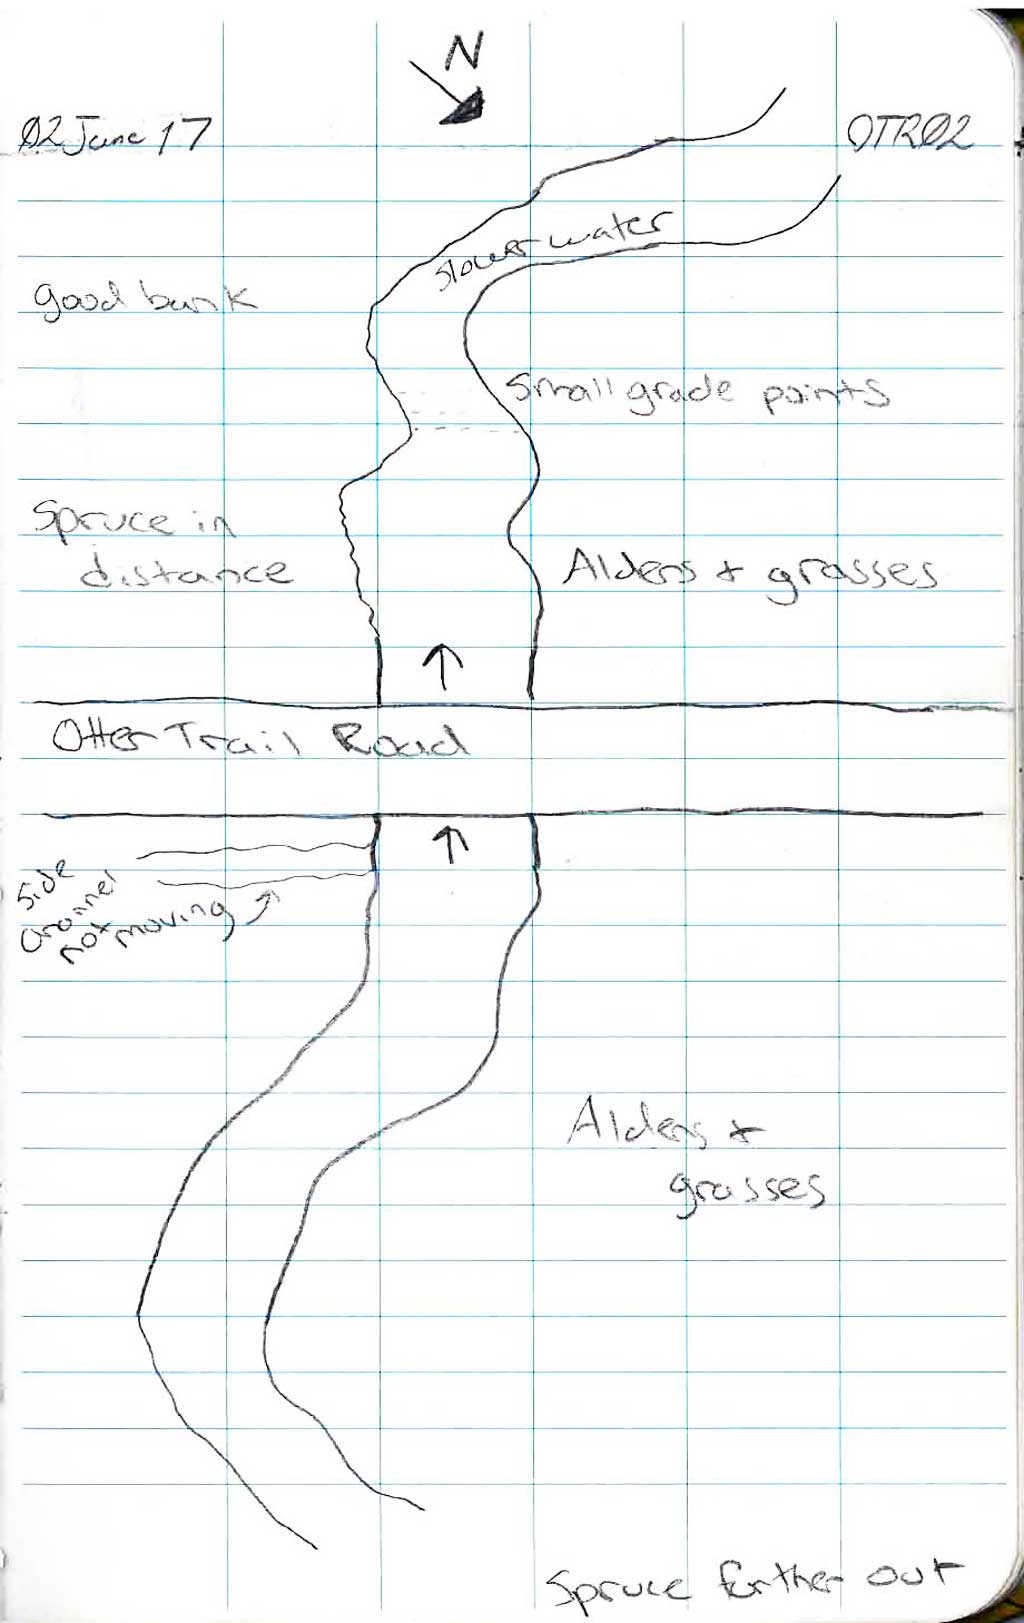 N
02 June 17
OTR02
Slower water
good bank
Small grade points
Spruce in
distance
Alders + grasses
Otter Trail Road
Side
Channel
not moving
Alders +
grasses
Spruce further out